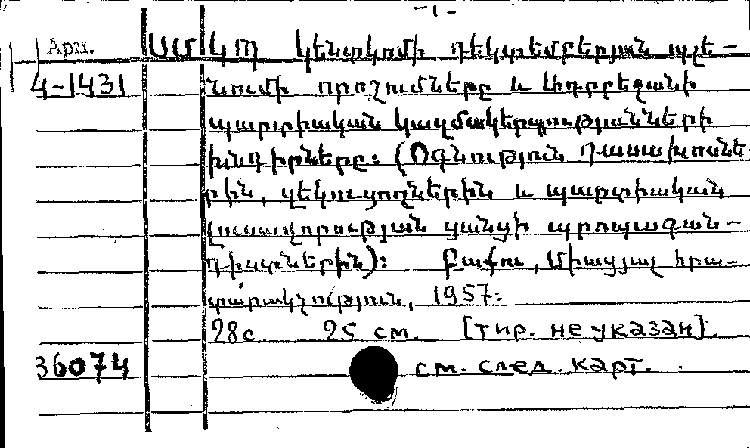 -1-
Арм. ՍՄԿՊ Կենտկոմի դեկտեմբերյան պլե-
4-1431 նումի որոշումները և Ադրբեջանի
պարտիական կազմակերպություններ ի
խնդիրները: (Օգնություն դասախոսնե-
րին, զեկուցողներին և պարտիական
լուսավորության ցանցի պրոպագան-
դիստներին): Բաքու, Միացյալ հրա-
տարակչություն, 1957:
28с 25 см. [тир. не указан].
36074 см. след. карт.